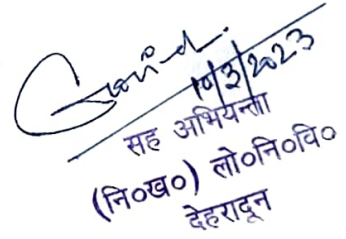 Govind
10/3/2023
सह अभियन्ता
(नि०ख०) लो०नि०वि०
देहरादून